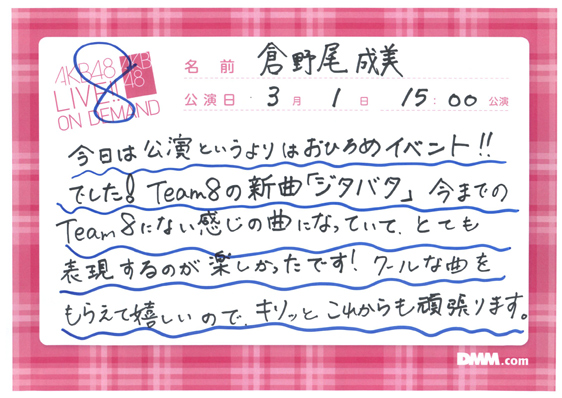 AKB48
LIVE!!
ON DEMAND
AKB
48
8
名前 倉野尾成美
公演日 3月1日 15:00公演
今日は公演というよりはおひろめイベント!!
でした! Team8の新曲「ジタバタ」今までの
Team8にない感じの曲になっていて、とても
表現するのが楽しかったです! クールな曲を
もらえて嬉しいので、キリッとこれからも頑張ります。
DMM.com